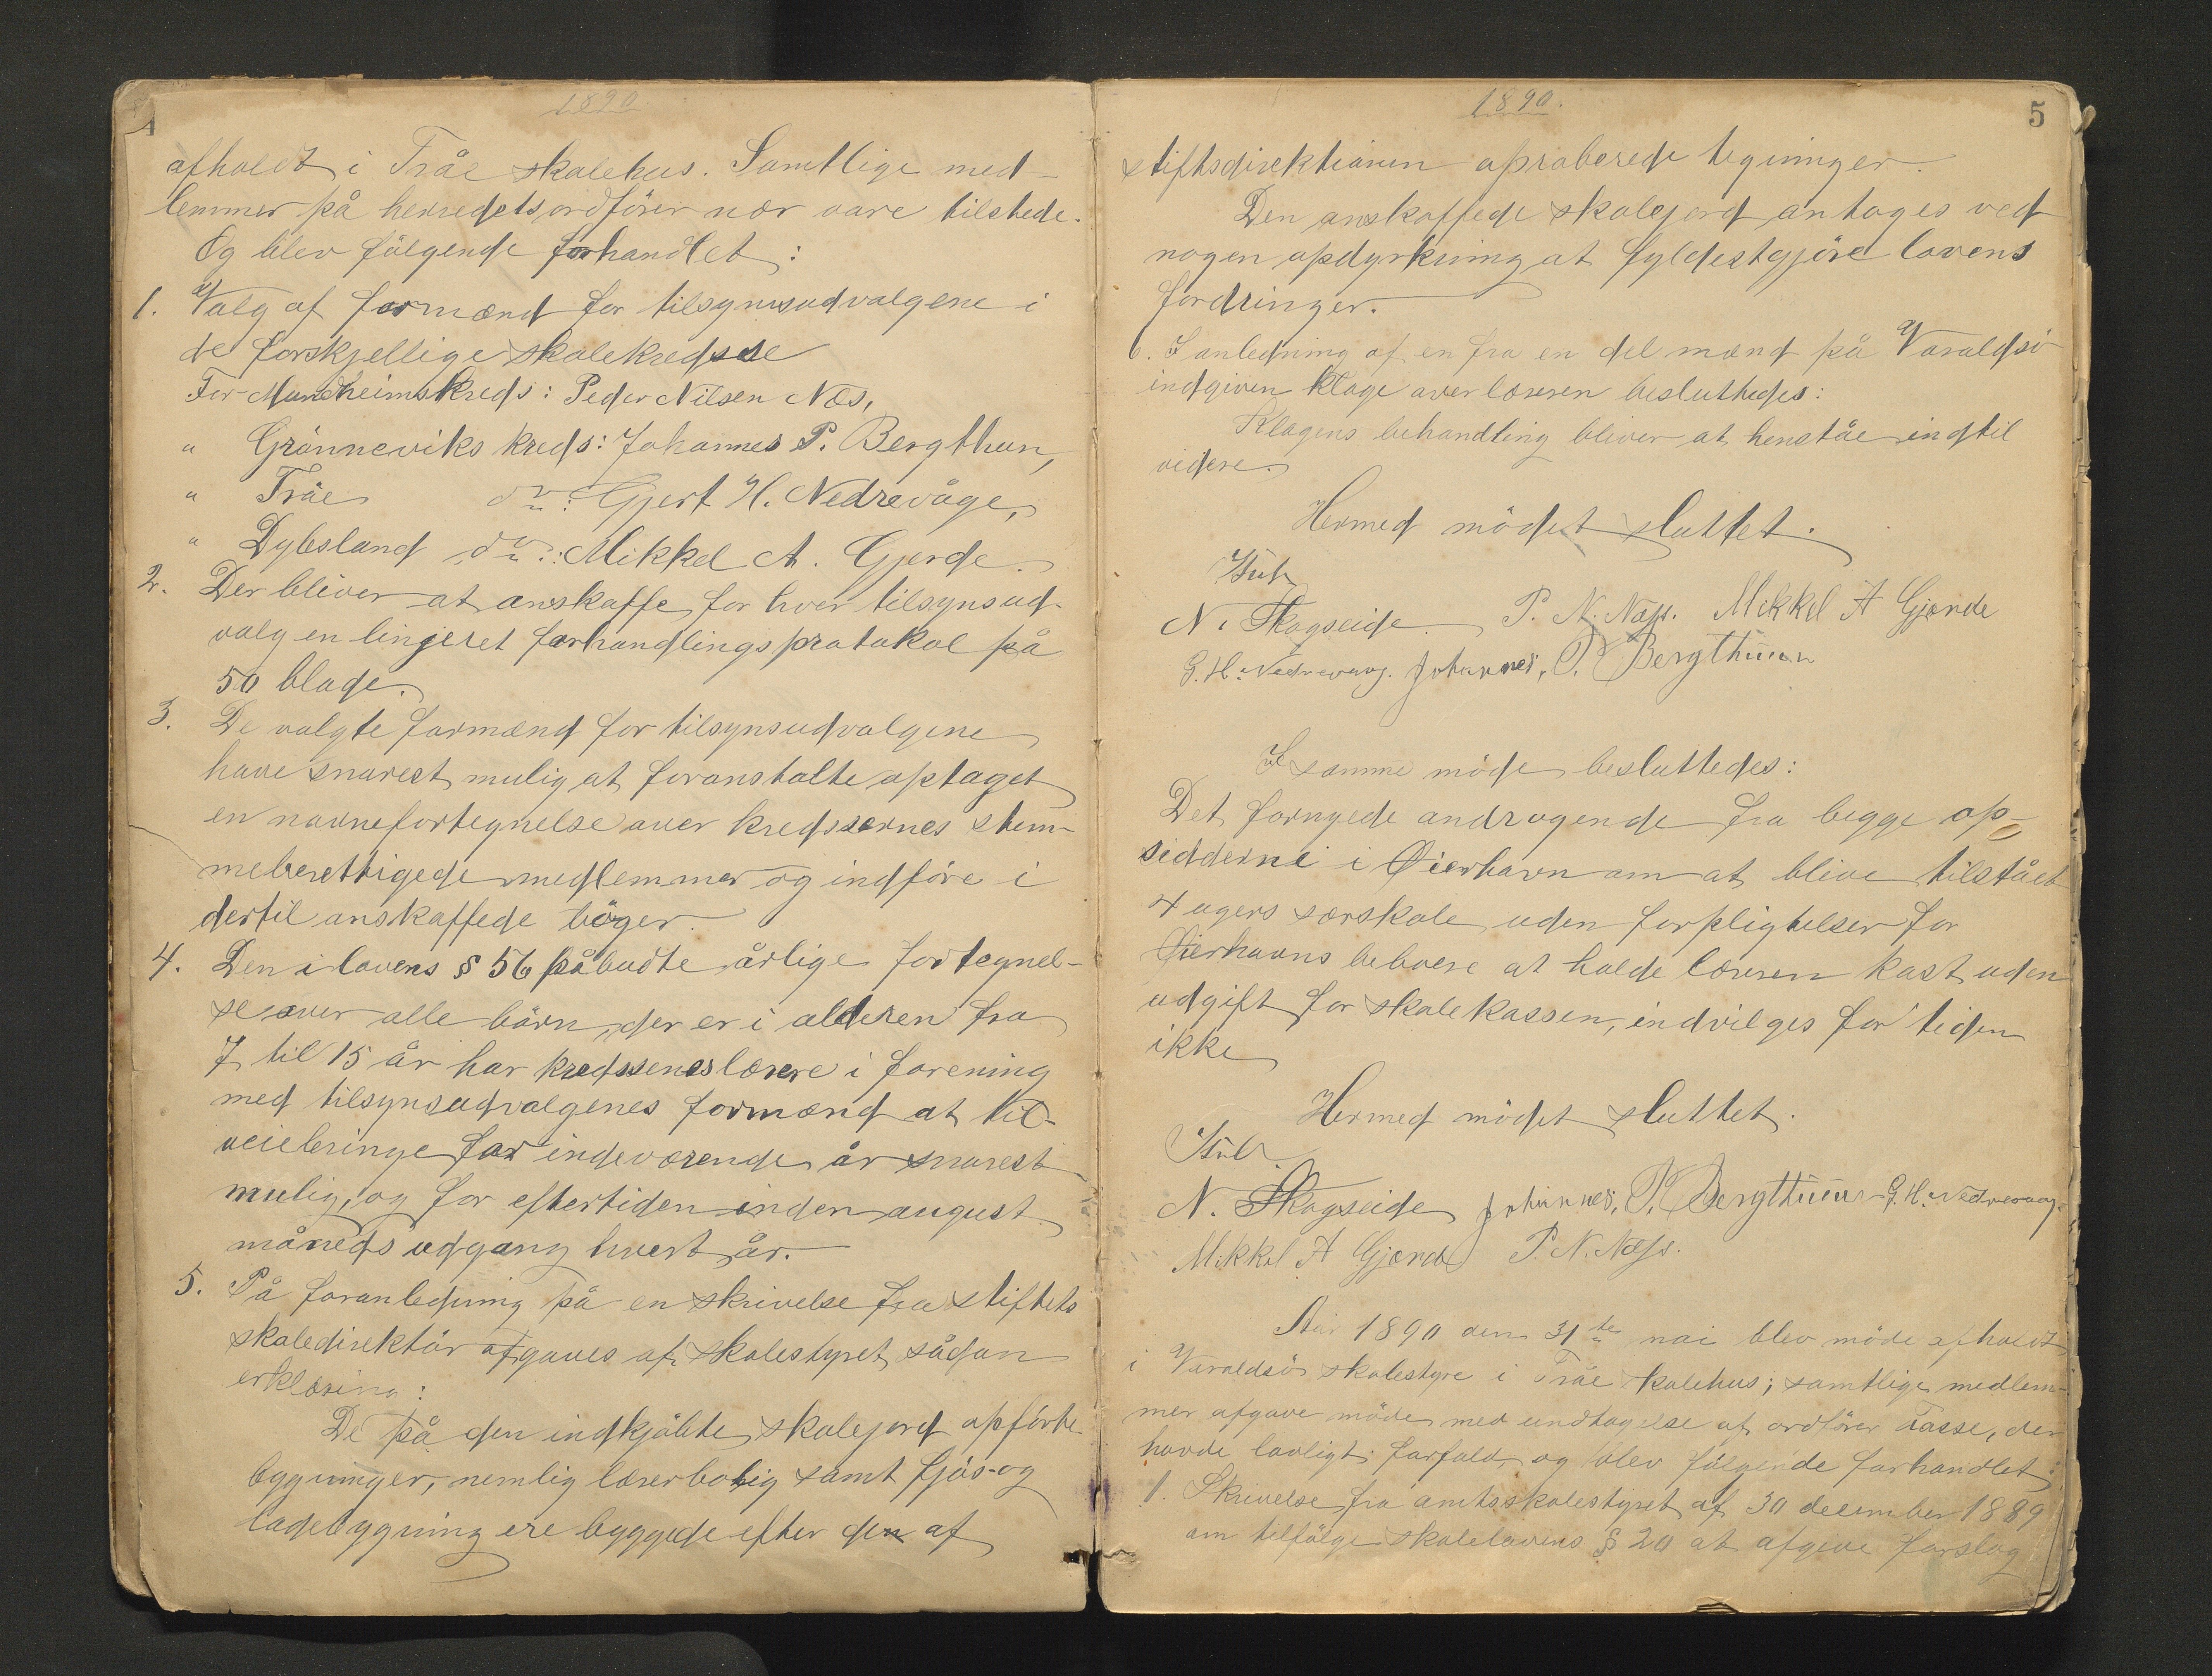 1890
afholdt i Tråe skolehus. Samtlige med-
lemmer på herredets ordförer nær vare tilstede.
Og blev fölgende forhandlet:
1. Valg af formænd for tilsynsudvalgene i
de forskjellige skolekredse
For Mundheimskreds: Peder Nilsen Næs,
" Grönneviks kreds: Johannes P. Bergthun,
" Tråe do: Gjert H. Nedrevåge,
" Dybsland do: Mikkel A. Gjerde.
2. Der bliver at anskaffe for hver tilsynsud-
valg en linjeret forhandlingsprotokol på
50 blade.
3. De valgte formænd for tilsynsudvalgene
have snarest mulig at foranstalte optaget
en navnefortegnelse over kredsernes stem-
meberettigede medlemmer og indföre i
dertil anskaffede böger.
4. Den i lovens § 56 påbudte årlige fortegnel-
se over alle börn, der er i alderen fra
7 til 15 år har kredsenes lærere i forening
med tilsynsudvalgenes formænd at til-
veiebringe for indeværende år snarest
mulig, og for eftertiden inden august
måneds udgang hvert år.
5. På foranledning på en skrivelse fra stiftets
skoledirektör afgaves af skolestyret sådan
erklæring:
De på den indkjöbte skolejord opförte
bygninger, nemlig lærerbolig samt fjös- og
ladebygning ere byggede efter den af
1890.
5
stiftsdirektionen aproberede tegninger.
Den anskaffede skolejord antages ved
nogen opdyrkning at fyldestgjöre lovens
fordringer.
6. I anledning af en fra en del mænd på Varaldsö
indgiven klage over læreren besluttedes:
Klagens behandling bliver at henståe indtil
videre.
Hermed mödet sluttet.
N. Skogseide P. N. Næss. Mikkel A Gjerde
G. H. Nedrevaag. Johannes. P. Bergthun
I samme möde besluttedes:
Det fornyede andragende fra begge op-
sidderne i Øierhavn om at blive tilstået
4 ugers særskole uden forpligtelser for
Øierhavns beboere at holde læreren kost uden
udgift for skolekassen, indvilges for tiden
ikke
Hermed mödet sluttet.
N. Skogseide Johannes. P. Bergthun G. H. Nedrevaag.
Mikkel A Gjerde P. N. Næss.
Aar 1890 den 31te mai blev möde afholdt
i Varaldsö skolestyre i Tråe skolehus; samtlige medlem-
mer afgave möde med undtagelse af ordförer Tasse, der
havde lovligt forfald, og blev fölgende forhandlet:
1. Skrivelse fra amtsskolestyret af 30 december 1889
om tilfölge skolelovens § 20 at afgive forslag